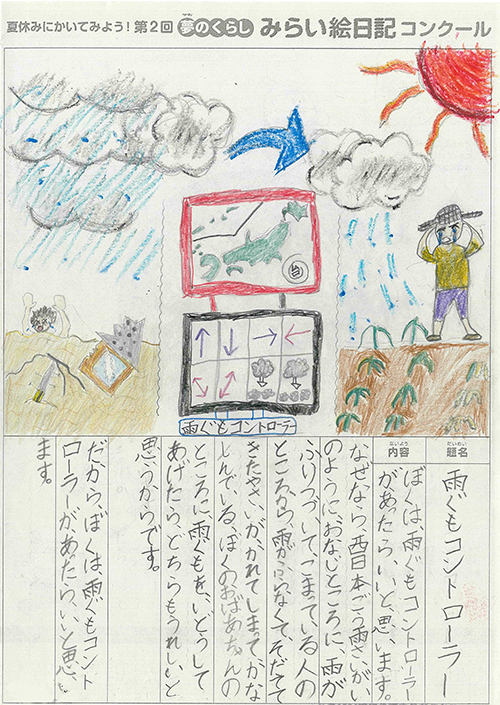 夏休みにかいてみよう!第2回 夢のくらし みらい絵日記コンクール
雨ぐもコントローラ
題名
だいめい
雨ぐもコントローラー
内容
ないよう
ぼくは、雨ぐもコントローラー
があったら、いいと思います。
なぜなら、西日本ごう雨さいがい
のように、おなじところに、雨が
ふりつづいて、こまっている人の
ところから雨がふらなくて、そだてて
きたやさいがかれてしまってかな
しんでいる、ぼくのおばあちゃんの
ところに雨ぐもを、いどうして
あげたら、どちらもうれしいと
思うからです。
だからぼくは、雨ぐもコント
ローラーがあったら、いいと思い
ます。